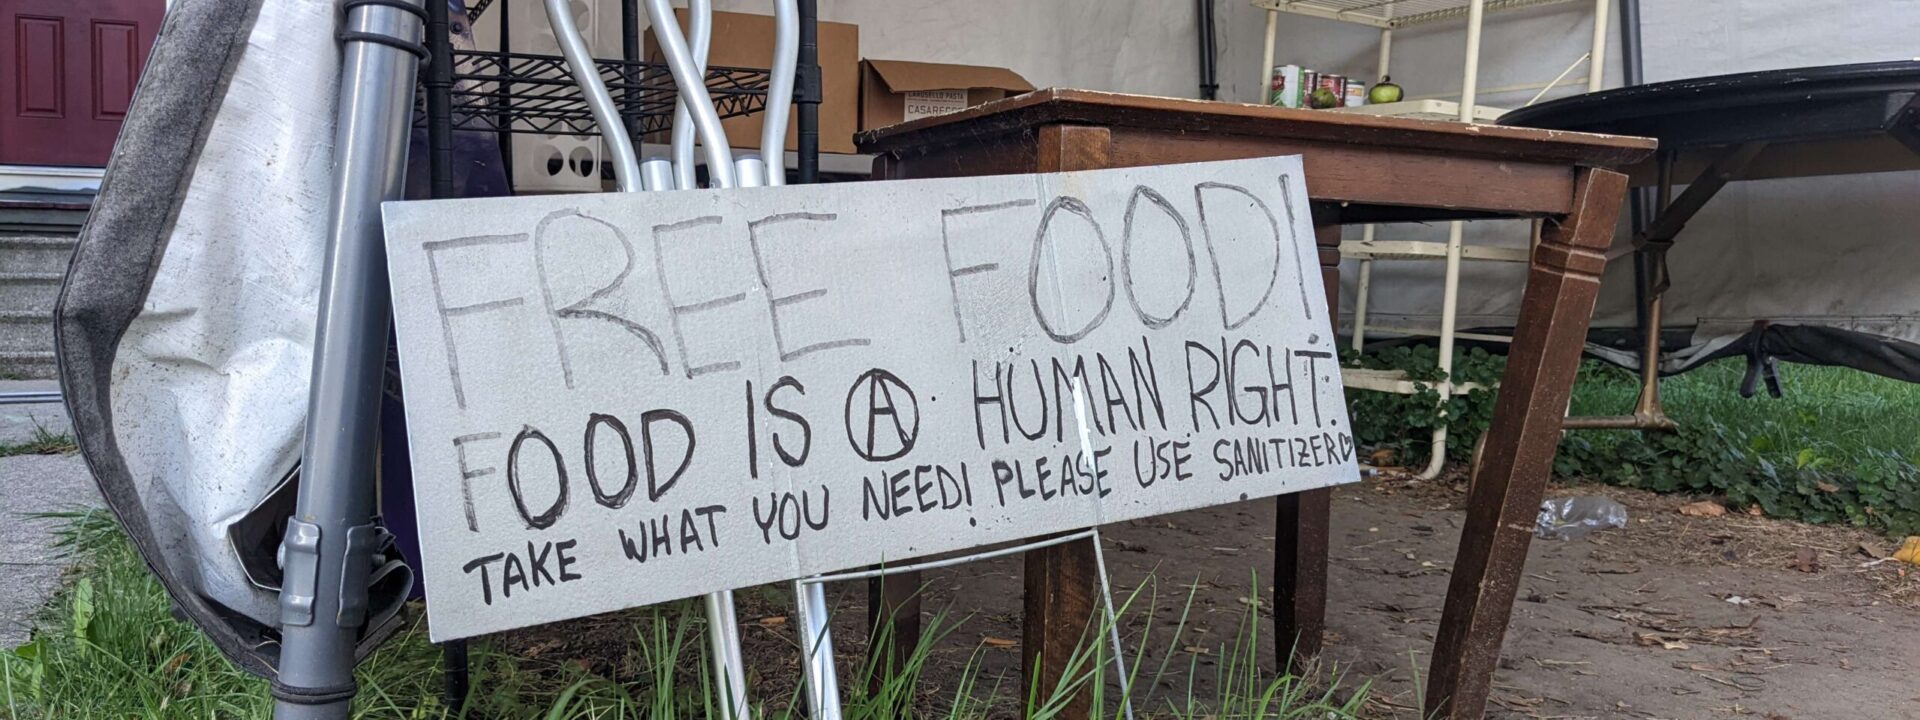 FREE FOOD!
FOOD IS Ⓐ HUMAN RIGHT.
TAKE WHAT YOU NEED! PLEASE USE SANITIZER♡
CAROSELLO PASTA
CASARECCE